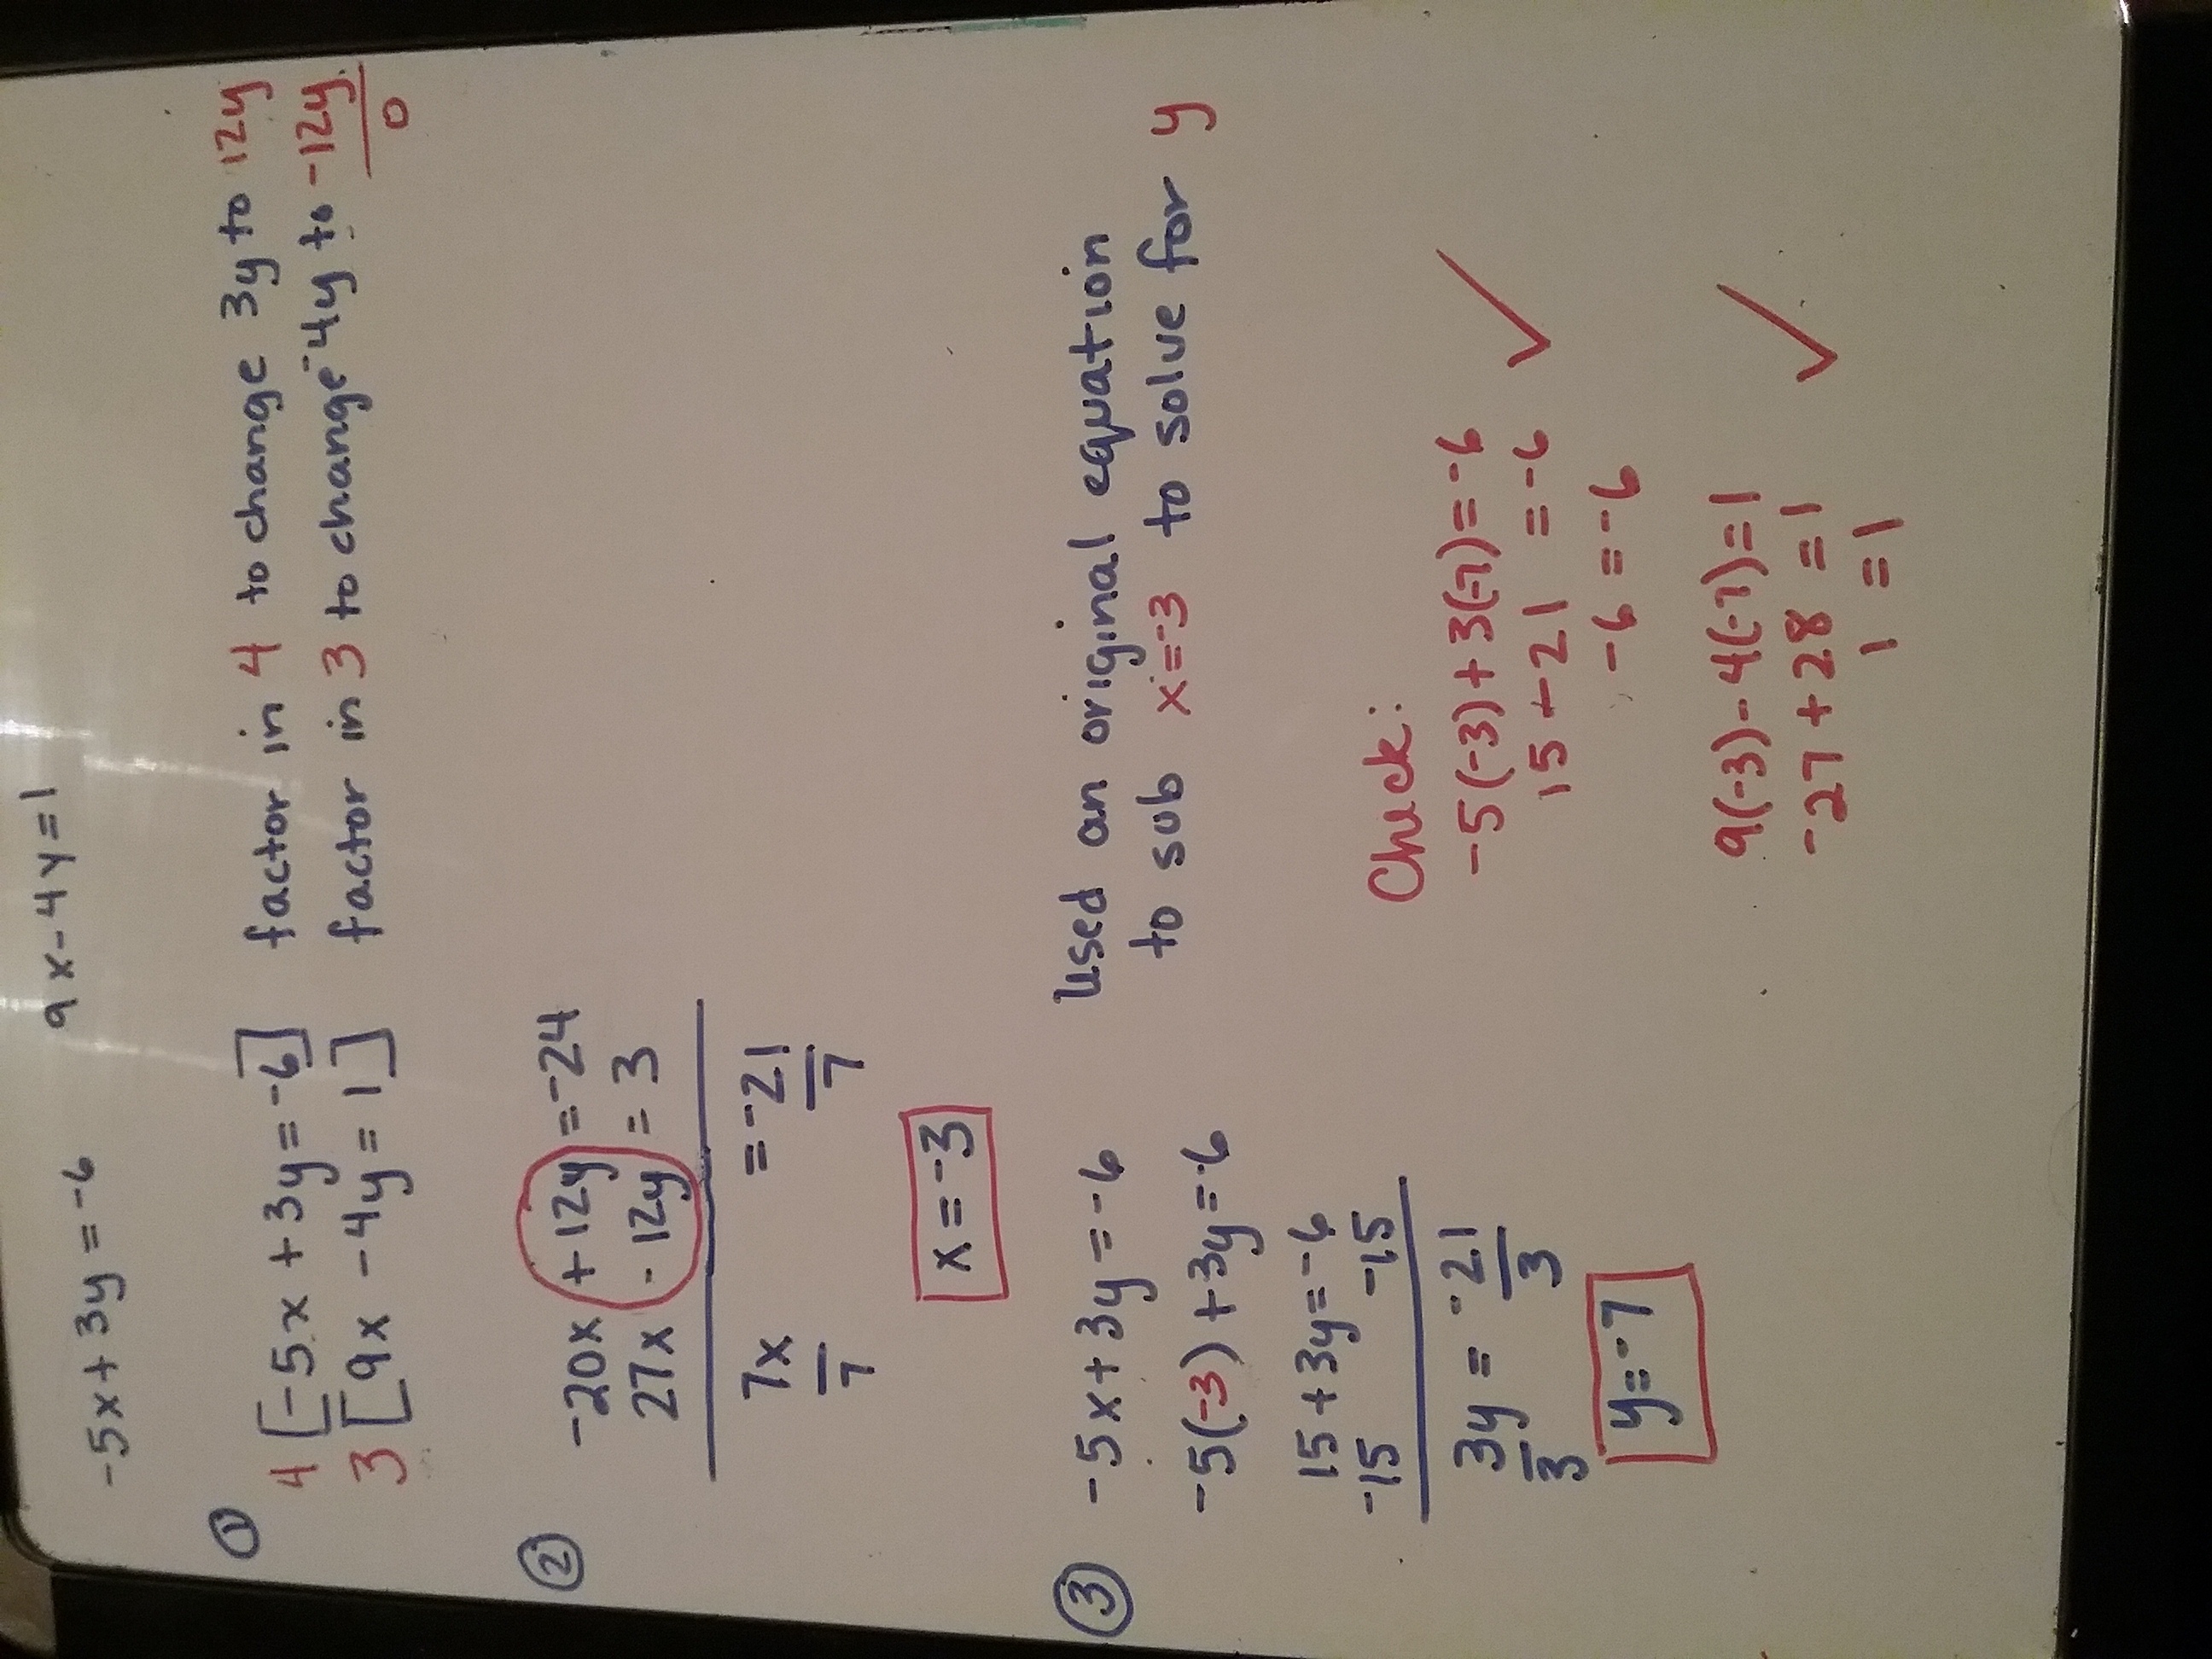 -5x+3y=-6 9x-4y=1
① 4[-5x+3y=-6] factor in 4 to change 3y to 12y
3[9x-4y=1] factor in 3 to change -4y to -12y
0
② -20x+12y=-24
27x-12y=3
7x =-21
7 7
x=-3
③ -5x+3y=-6 Used an original equation
-5(-3)+3y=-6 to sub x=-3 to solve for y
15+3y=-6
-15 -15
3y=-21
3 3
y=-7
Check:
-5(-3)+3(-7)=-6 ✓
15+-21=-6
-6=-6
9(-3)-4(-7)=1 ✓
-27+28=1
1=1